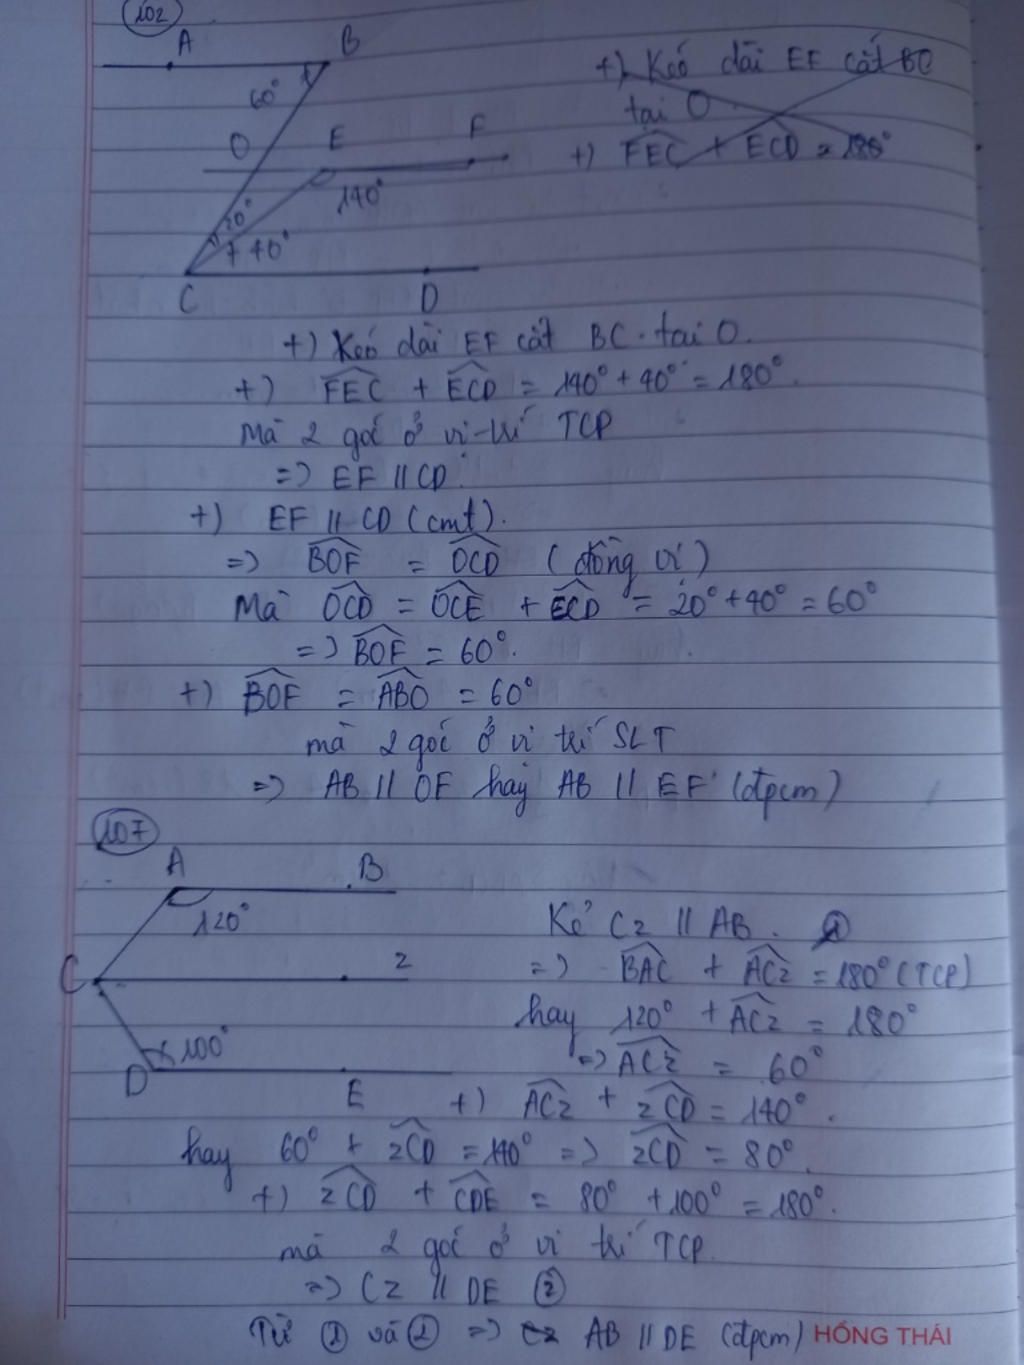 102
A B
60°
O E F
140°
20°
40°
C D
+) Kéo dài EF cắt BC
tại O
+) FEC + ECD = 180°
+) Kéo dài EF cắt BC tại O.
+) FEC + ECD = 140° + 40° = 180°.
Mà 2 góc ở vị trí TCP
=> EF // CD.
+) EF // CD (cmt).
=> BOF = OCD (đồng vị)
Mà OCD = OCE + ECD = 20° + 40° = 60°
=> BOF = 60°.
+) BOF = ABO = 60°
mà 2 góc ở vị trí SLT
=> AB // OF hay AB // EF (đpcm)
107
A B
120°
C z
100°
D E
Kẻ Cz // AB. ①
=> BAC + ACz = 180° (TCP)
hay 120° + ACz = 180°
=> ACz = 60°
+) ACz + zCD = 140°.
hay 60° + zCD = 140° => zCD = 80°.
+) zCD + CDE = 80° + 100° = 180°.
mà 2 góc ở vị trí TCP.
=> Cz // DE ②
Từ ① và ② => AB // DE (đpcm) HỒNG THÁI